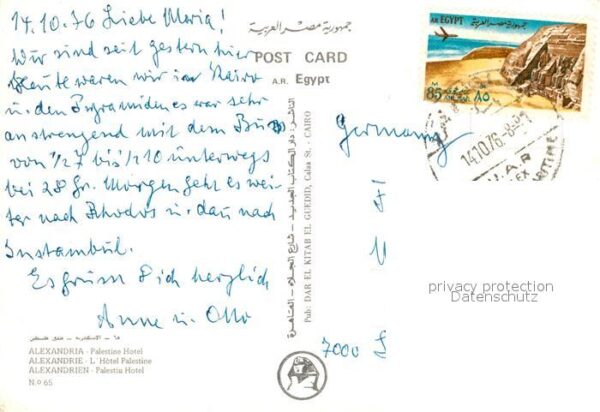 14.10.76 Liebe Maria!
Wir sind seit gestern hier
Heute waren wir in Kairo
u. den Pyramiden es war sehr
anstrengend mit dem Bus
von 1/2 7 bis 1/2 10 unterwegs
bei 28 Gr. Morgen geht es wei-
ter nach Rhodos u. dan nach
Instambul.
Es grüssen Dich herzlich
Anne u. Otto
٦٥ - الاسكندرية - فندق فلسطين
ALEXANDRIA - Palestine Hotel
ALEXANDRIE - L'Hôtel Palestine
ALEXANDRIEN - Palestin Hotel
N.º 65
جمهورية مصر العربية
POST CARD
A.R. Egypt
الناشر: دار الكتاب الجديد - شارع الجلاء - القاهرة
Pub: DAR EL KITAB EL GUEDID, Galaa St., CAIRO
AR EGYPT
85
٨٥
14.10.76
U.A.R
Germany
7000 S
privacy protection
Datenschutz